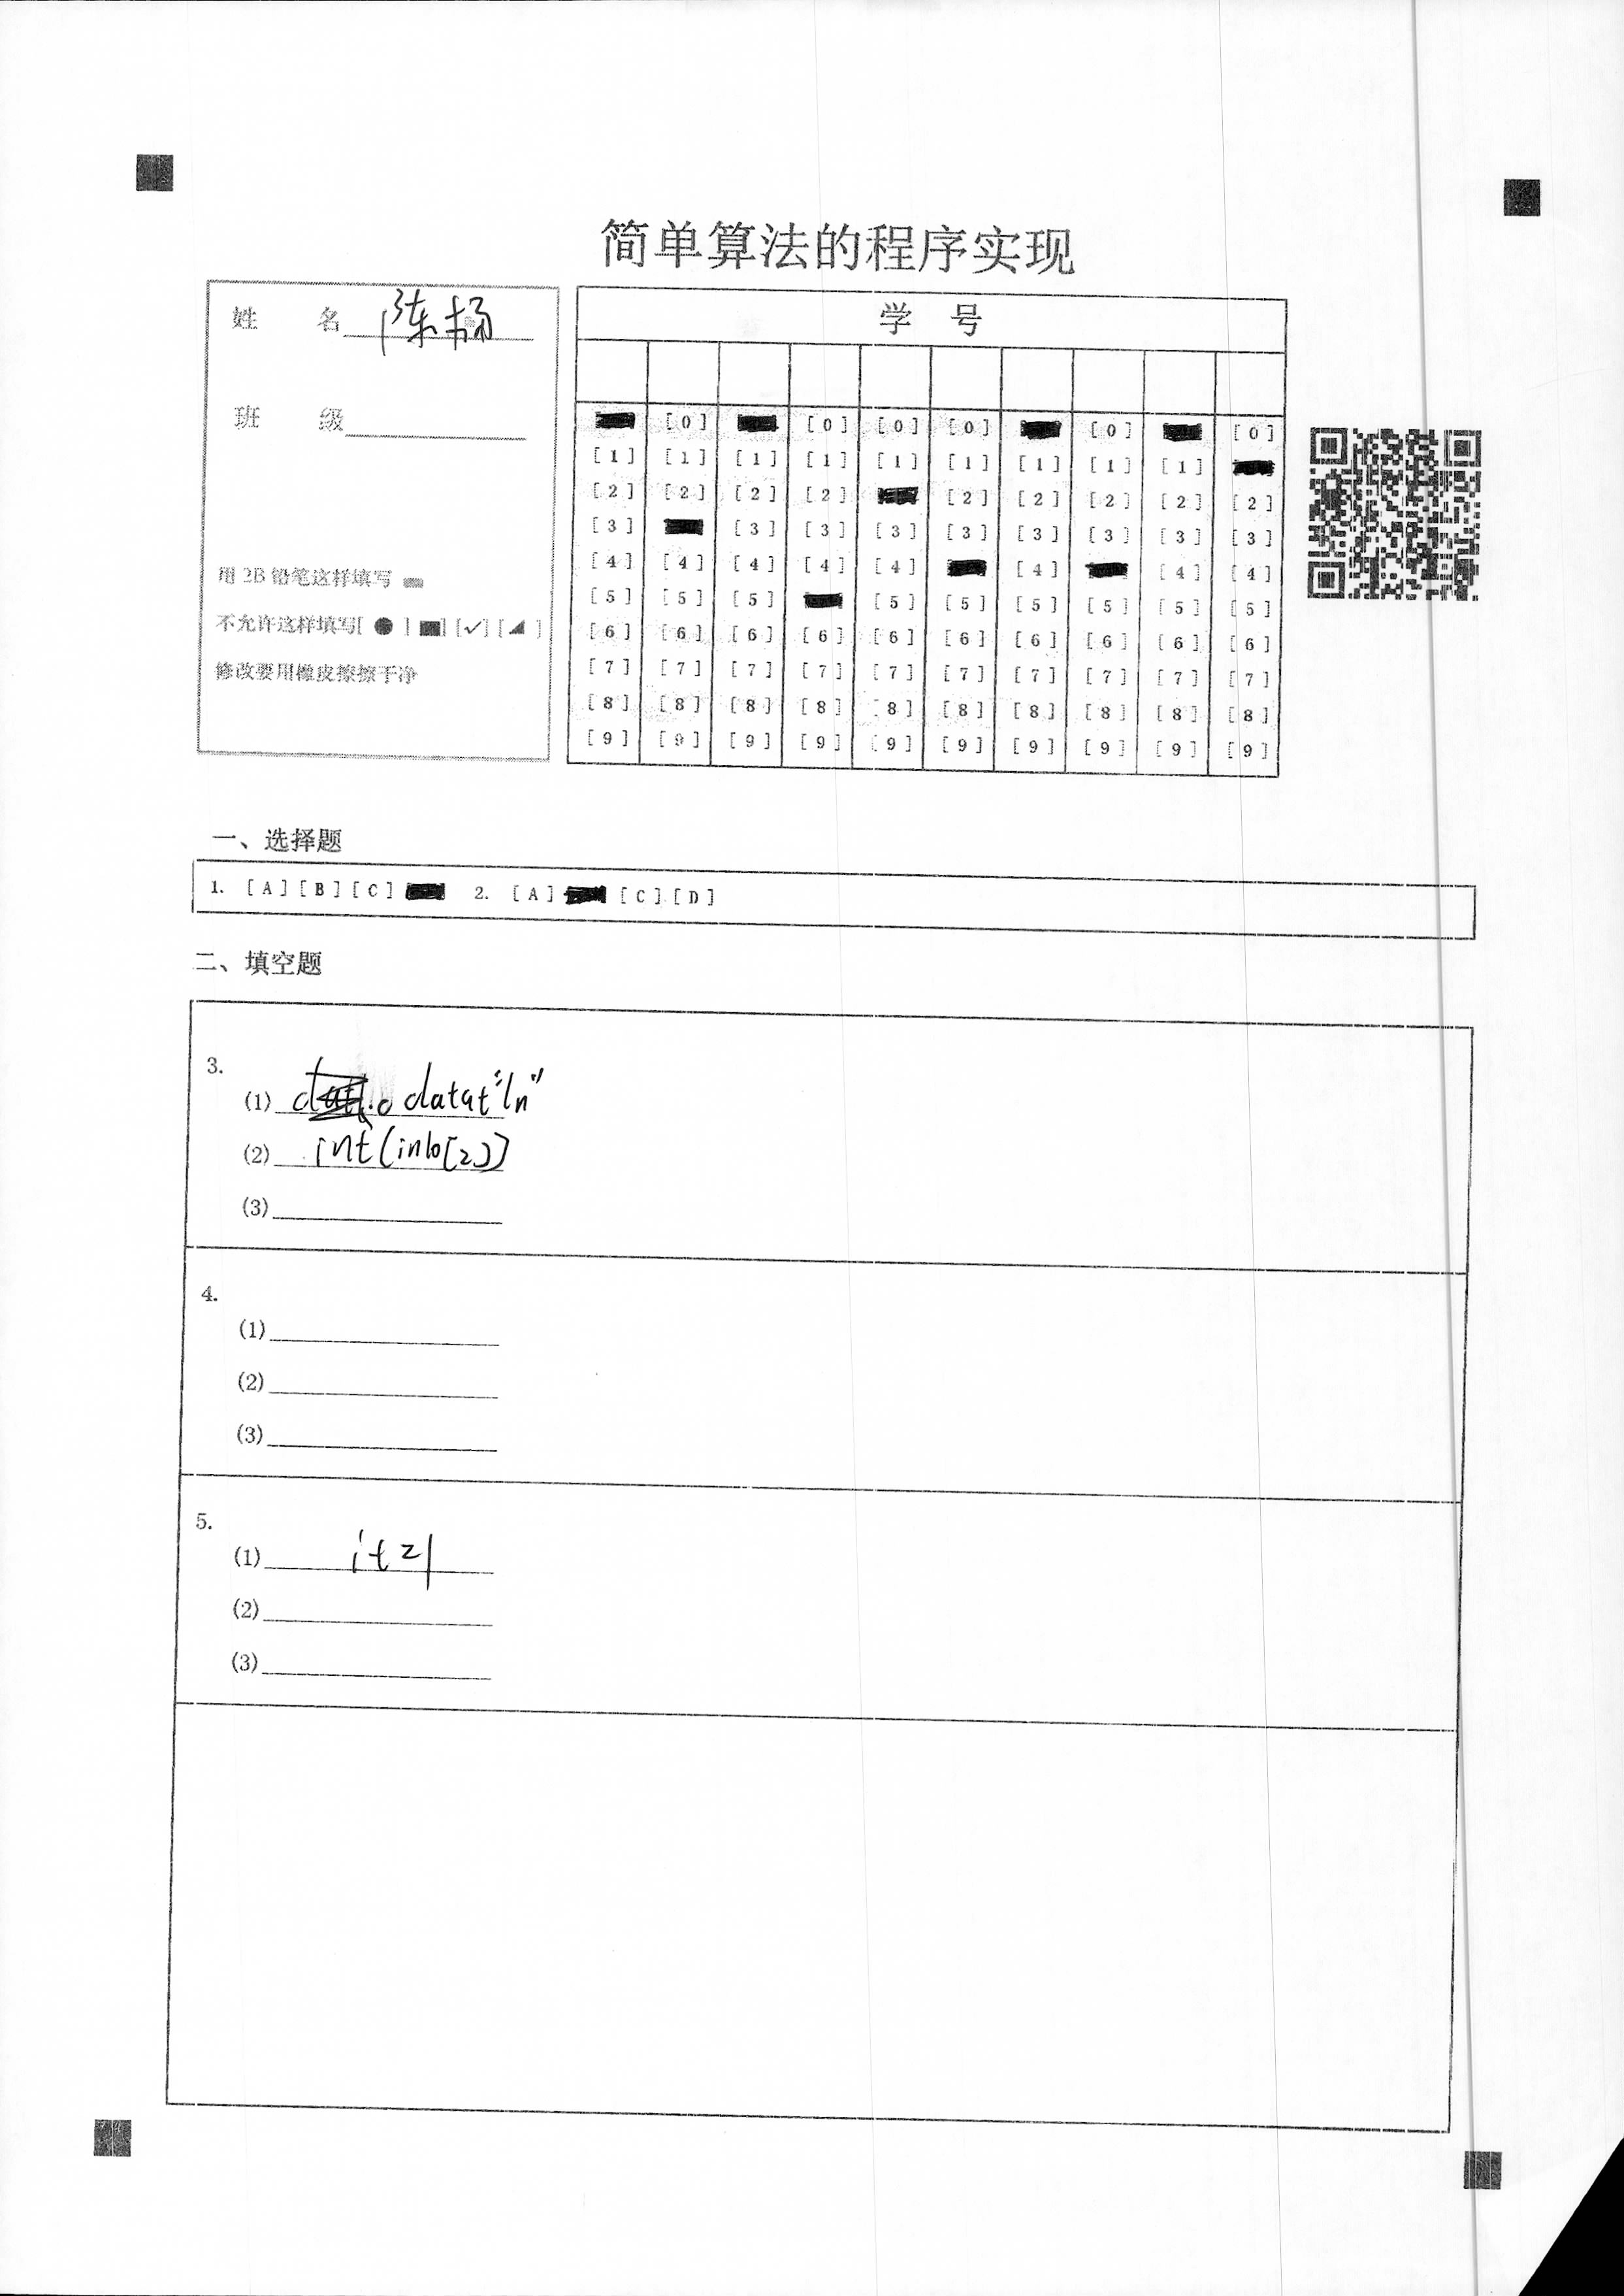 简单算法的程序实现
姓 名 陈杨
班 级
用 2B 铅笔这样填写
不允许这样填写[ ● ] [■] [✓] [◢ ]
修改要用橡皮擦擦干净
学 号
[0] [0] [0] [0] [0] [0]
[1] [1] [1] [1] [1] [1] [1] [1] [1]
[2] [2] [2] [2] [2] [2] [2] [2] [2]
[3] [3] [3] [3] [3] [3] [3] [3] [3]
[4] [4] [4] [4] [4] [4] [4] [4]
[5] [5] [5] [5] [5] [5] [5] [5] [5]
[6] [6] [6] [6] [6] [6] [6] [6] [6] [6]
[7] [7] [7] [7] [7] [7] [7] [7] [7] [7]
[8] [8] [8] [8] [8] [8] [8] [8] [8] [8]
[9] [9] [9] [9] [9] [9] [9] [9] [9] [9]
一、选择题
1. [A] [B] [C] 2. [A] [C] [D]
二、填空题
3.
(1) datat"ln"
(2) int(info[2])
(3)
4.
(1)
(2)
(3)
5.
(1) i+=1
(2)
(3)